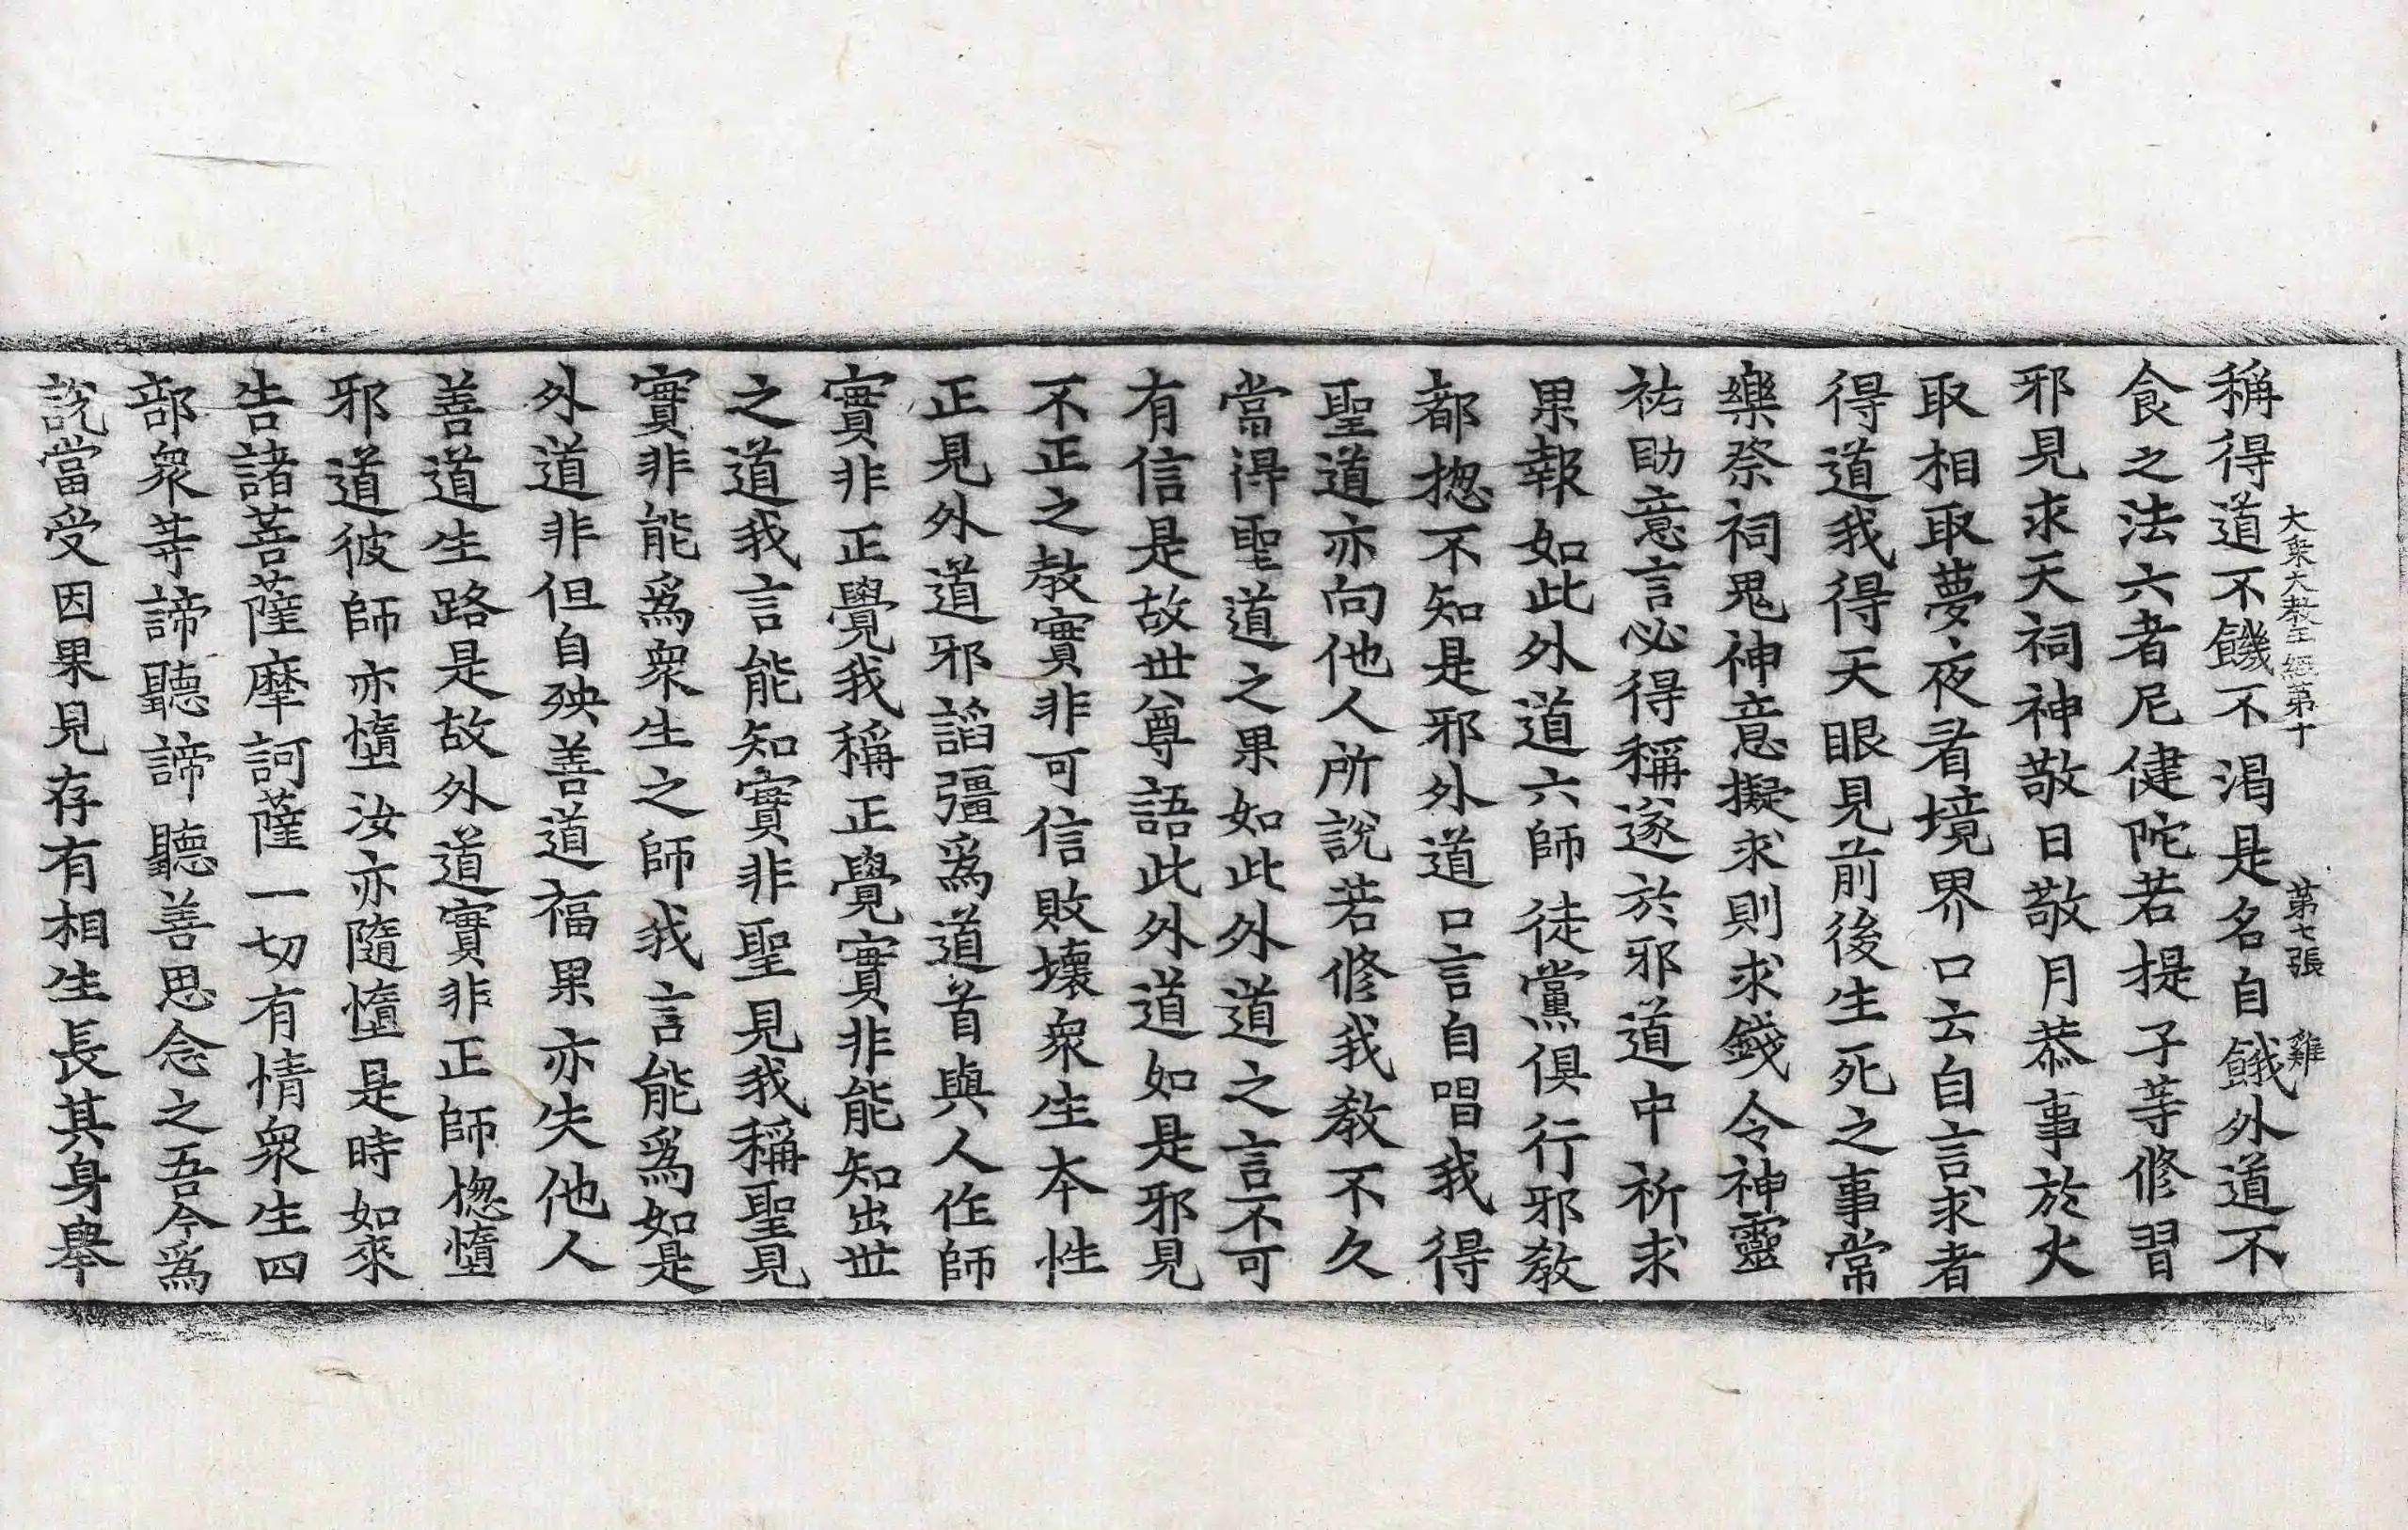 大乘大教王經第十　第七張　雞
稱得道不饑不渴是名自餓外道不
食之法六者尼健陀若提子䓁修習
邪見求天祠神敬日敬月恭事於火
取相取夢夜看境界口云自言求者
得道我得天眼見前後生死之事常
樂祭祠鬼神意擬求則求錢令神靈
祐助意言必得稱遂於邪道中祈求
果報如此外道六師徒黨俱行邪教
都揔不知是邪外道口言自唱我得
聖道亦向他人所說若修我教不久
當得聖道之果如此外道之言不可
有信是故世尊語此外道如是邪見
不正之教實非可信敗壞衆生本性
正見外道邪諂彊爲道首與人作師
實非正覺我稱正覺實非能知出世
之道我言能知實非聖見我稱聖見
實非能爲衆生之師我言能爲如是
外道非但自殃善道福果亦失他人
善道生路是故外道實非正師揔墮
邪道彼師亦墮汝亦隨墮是時如來
告諸菩薩摩訶薩一切有情衆生四
部衆䓁諦聽諦聽善思念之吾今爲
說當受因果見存有相生長其身舉